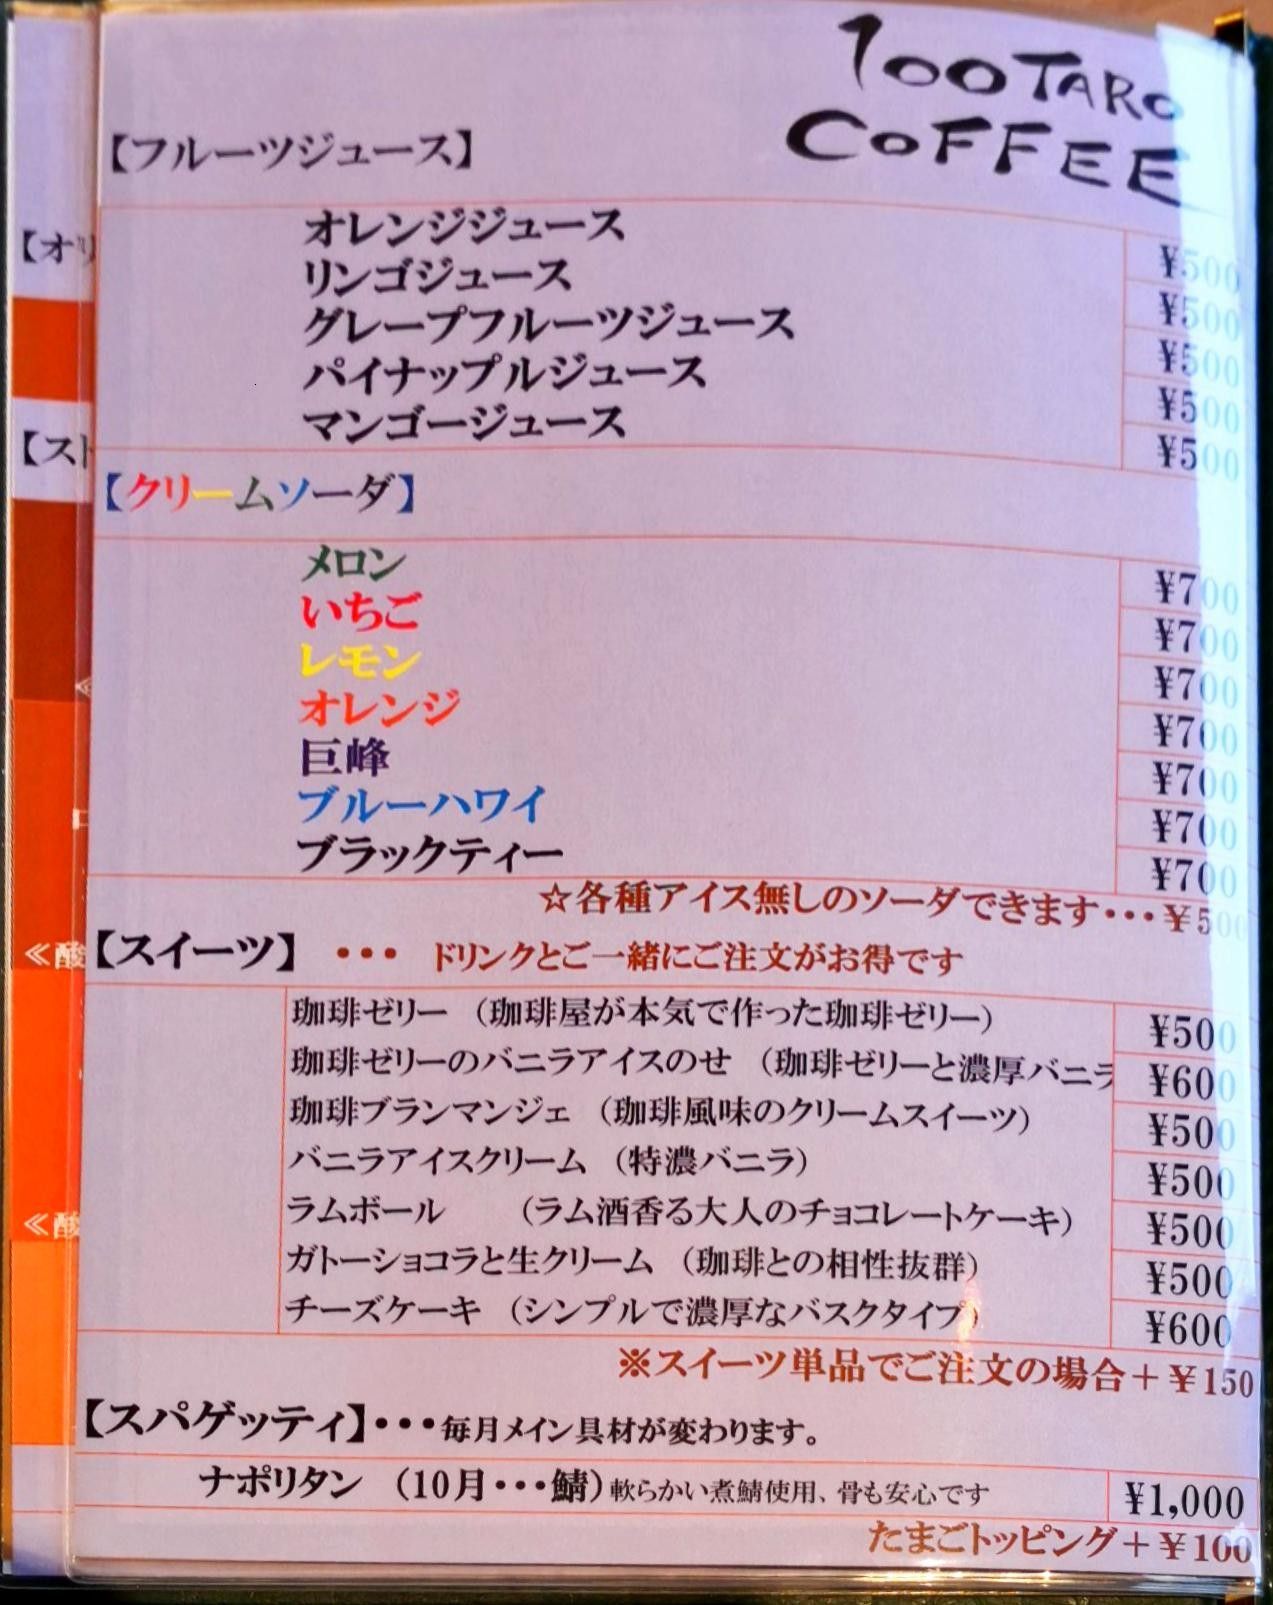 100TARO
COFFEE
【フルーツジュース】
オレンジジュース ¥500
リンゴジュース ¥500
グレープフルーツジュース ¥500
パイナップルジュース ¥500
マンゴージュース ¥500
【クリームソーダ】
メロン ¥700
いちご ¥700
レモン ¥700
オレンジ ¥700
巨峰 ¥700
ブルーハワイ ¥700
ブラックティー ¥700
☆各種アイス無しのソーダできます・・・¥500
【スイーツ】 ・・・ ドリンクとご一緒にご注文がお得です
珈琲ゼリー (珈琲屋が本気で作った珈琲ゼリー) ¥500
珈琲ゼリーのバニラアイスのせ (珈琲ゼリーと濃厚バニラ ¥600
珈琲ブランマンジェ (珈琲風味のクリームスイーツ) ¥500
バニラアイスクリーム (特濃バニラ) ¥500
ラムボール (ラム酒香る大人のチョコレートケーキ) ¥500
ガトーショコラと生クリーム (珈琲との相性抜群) ¥500
チーズケーキ (シンプルで濃厚なバスクタイプ) ¥600
※スイーツ単品でご注文の場合+¥150
【スパゲッティ】・・・毎月メイン具材が変わります。
ナポリタン (10月・・・鯖)軟らかい煮鯖使用、骨も安心です ¥1,000
たまごトッピング+¥100
【オリ
【スト
≪酸
≪酸